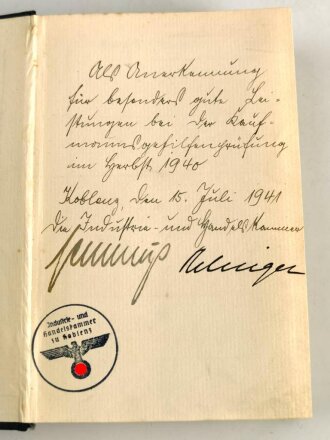 Als Anerkennung
für besonders gute Lei-
stungen bei der Kauf-
mannsgehilfenprüfung
im Herbst 1940
Koblenz, den 15. Juli 1941
Die Industrie- und Handelskammer
Industrie- und
Handelskammer
zu Koblenz